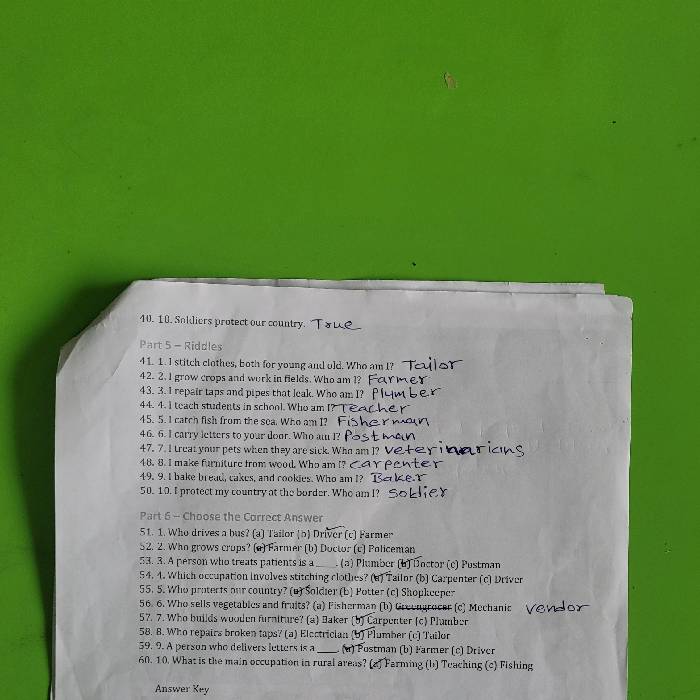 40. 10. Soldiers protect our country. True
Part 5 – Riddles
41. 1. I stitch clothes, both for young and old. Who am I? Tailor
42. 2. I grow crops and work in fields. Who am I? Farmer
43. 3. I repair taps and pipes that leak. Who am I? Plumber
44. 4. I teach students in school. Who am I? Teacher
45. 5. I catch fish from the sea. Who am I? Fisherman
46. 6. I carry letters to your door. Who am I? Postman
47. 7. I treat your pets when they are sick. Who am I? veterinarians
48. 8. I make furniture from wood. Who am I? carpenter
49. 9. I bake bread, cakes, and cookies. Who am I? Baker
50. 10. I protect my country at the border. Who am I? soldier
Part 6 – Choose the Correct Answer
51. 1. Who drives a bus? (a) Tailor (b) Driver (c) Farmer
52. 2. Who grows crops? (a) Farmer (b) Doctor (c) Policeman
53. 3. A person who treats patients is a ____. (a) Plumber (b) Doctor (c) Postman
54. 4. Which occupation involves stitching clothes? (a) Tailor (b) Carpenter (c) Driver
55. 5. Who protects our country? (a) Soldier (b) Potter (c) Shopkeeper
56. 6. Who sells vegetables and fruits? (a) Fisherman (b) Greengrocer (c) Mechanic vendor
57. 7. Who builds wooden furniture? (a) Baker (b) Carpenter (c) Plumber
58. 8. Who repairs broken taps? (a) Electrician (b) Plumber (c) Tailor
59. 9. A person who delivers letters is a ____. (a) Postman (b) Farmer (c) Driver
60. 10. What is the main occupation in rural areas? (a) Farming (b) Teaching (c) Fishing
Answer Key